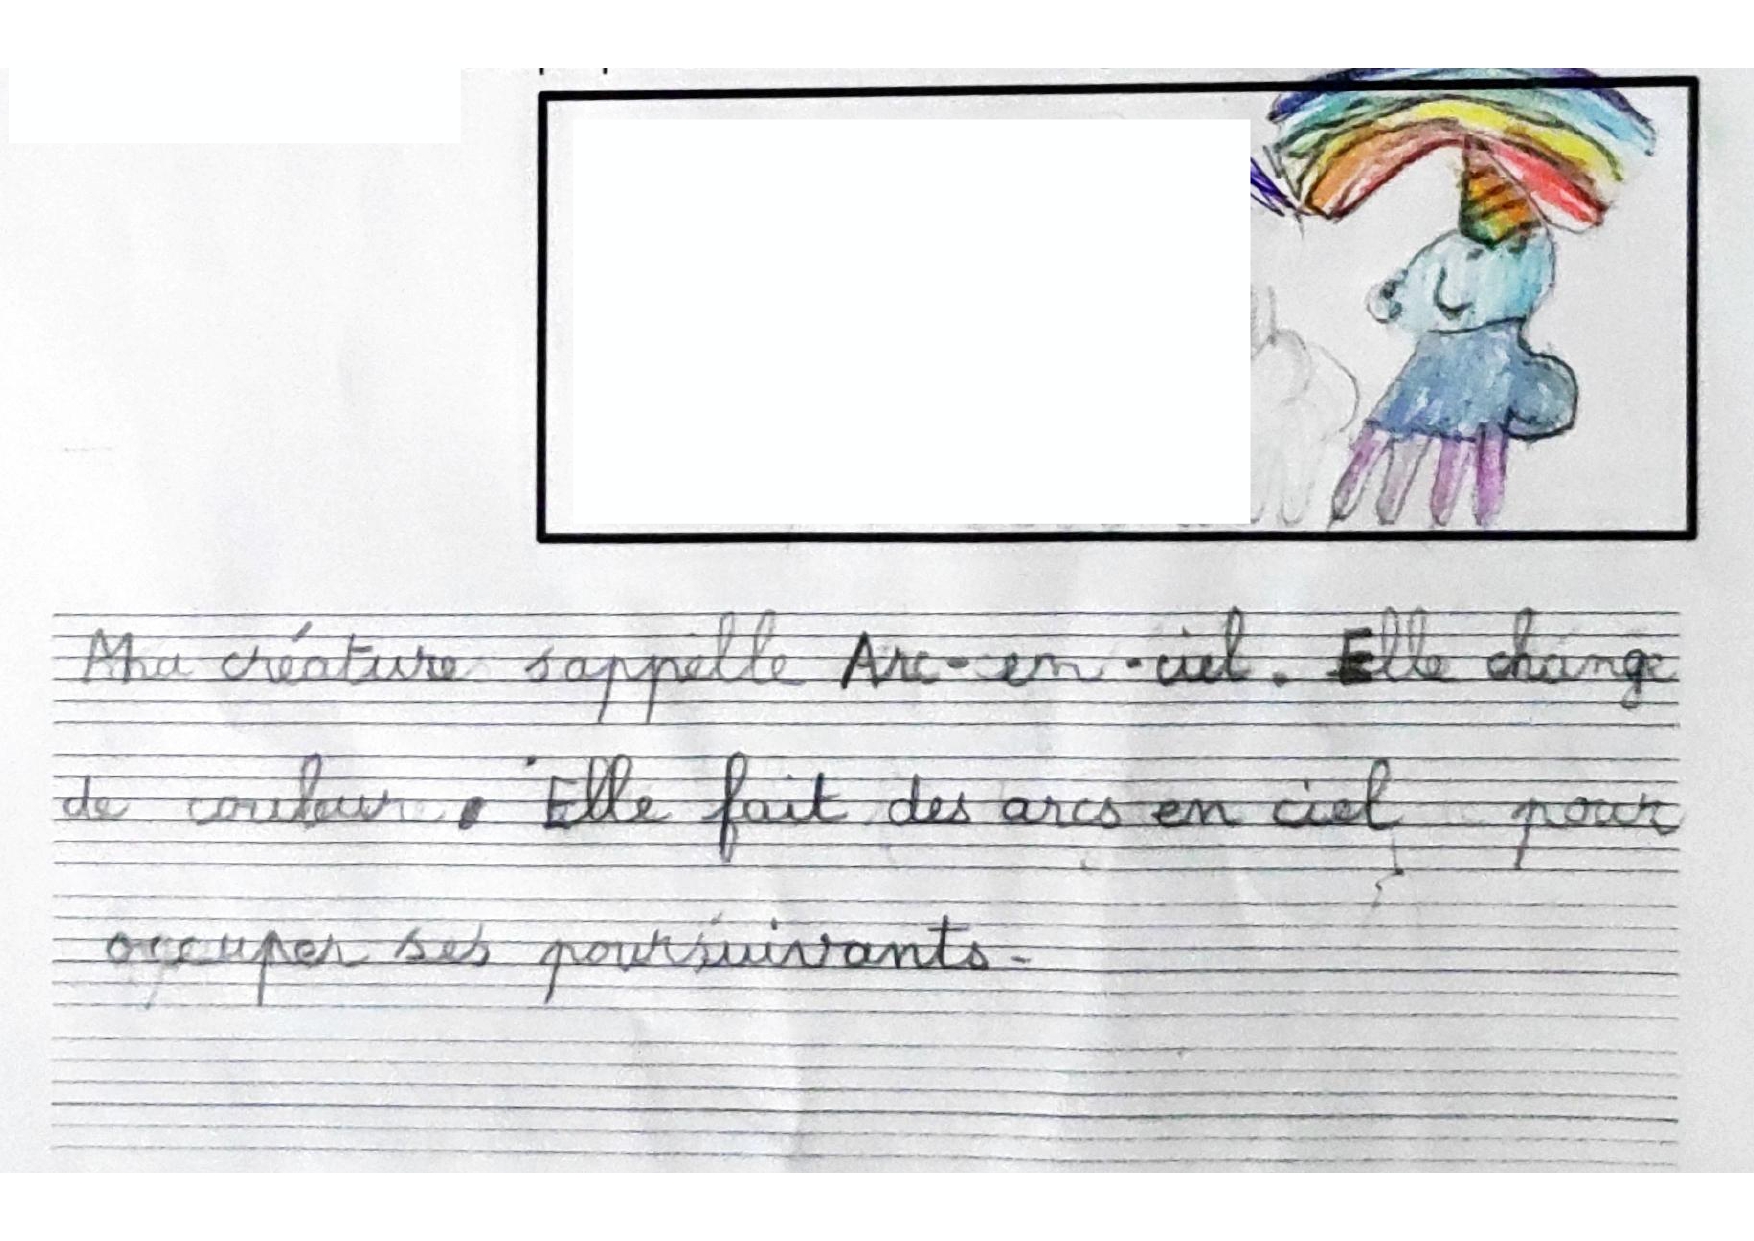 Ma créature sappelle Arc-en-ciel. Elle change
de couleur. Elle fait des arcs en ciel pour
occuper ses poursuivants.